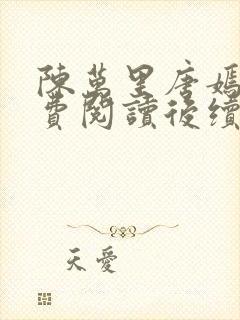 陳萬里唐嫣
費閱讀後續
天愛